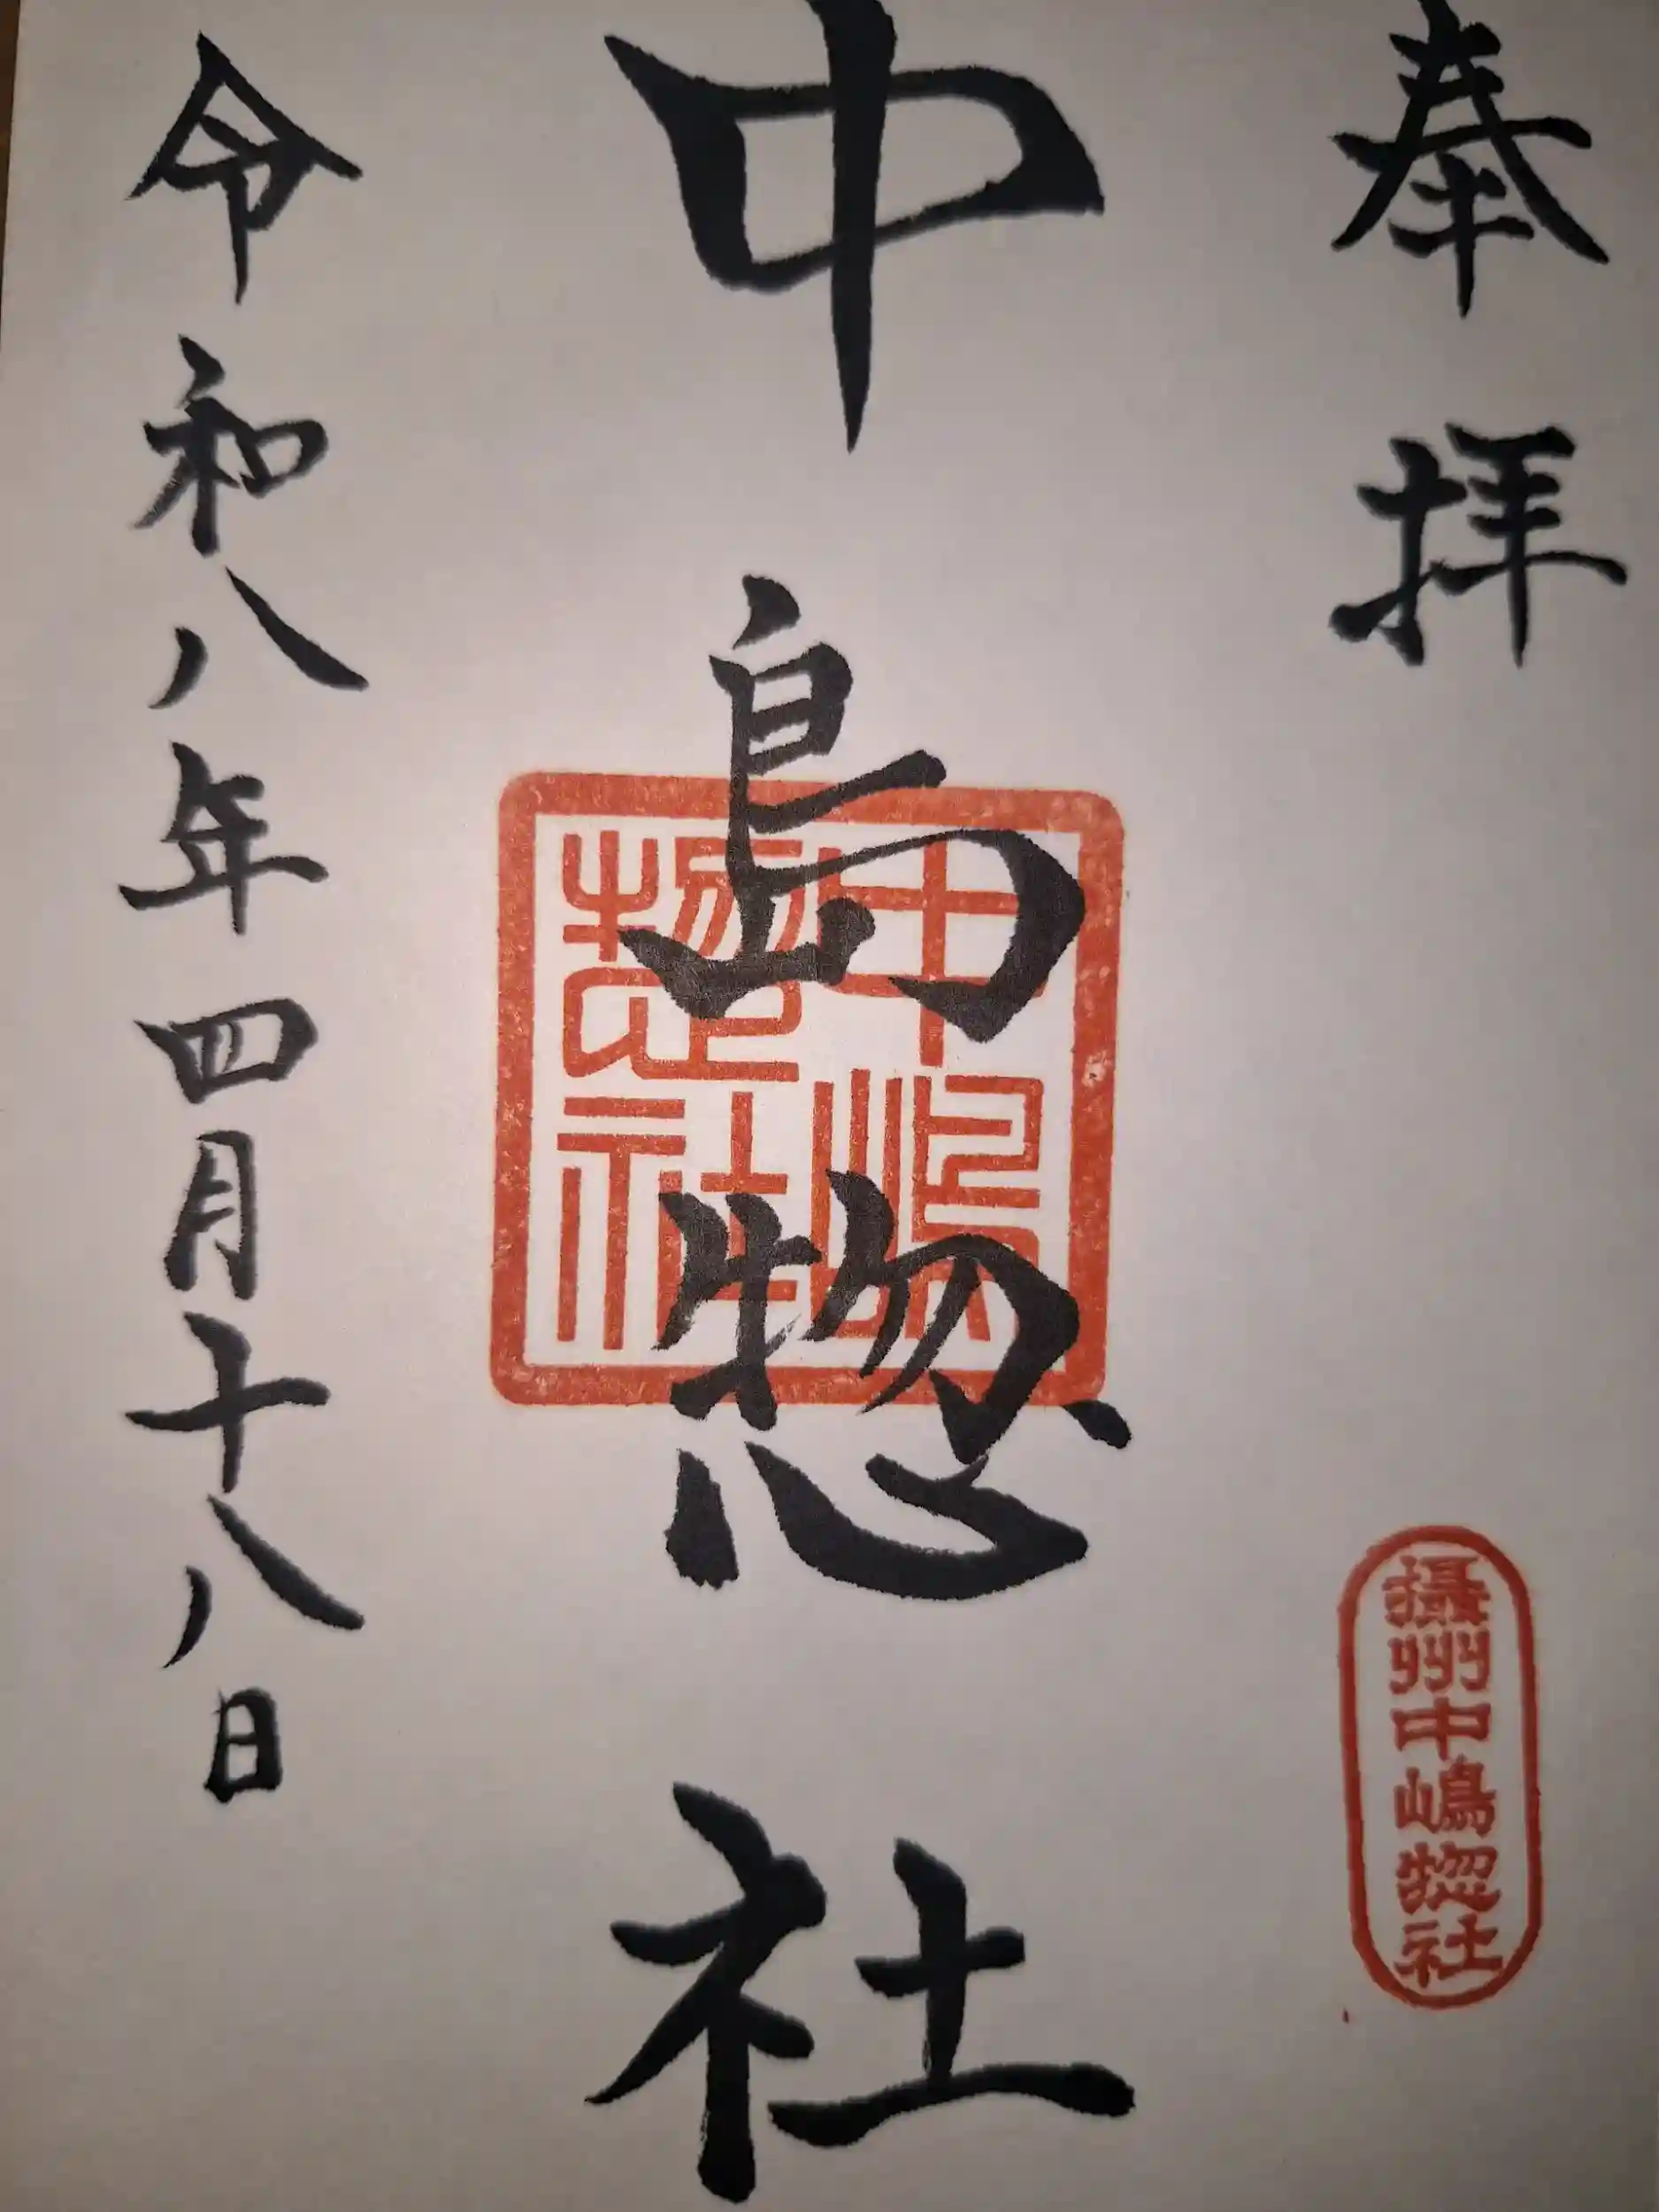 奉拝
攝州中嶋惣社
中島惣社
中嶋
惣社
令和八年四月十八日